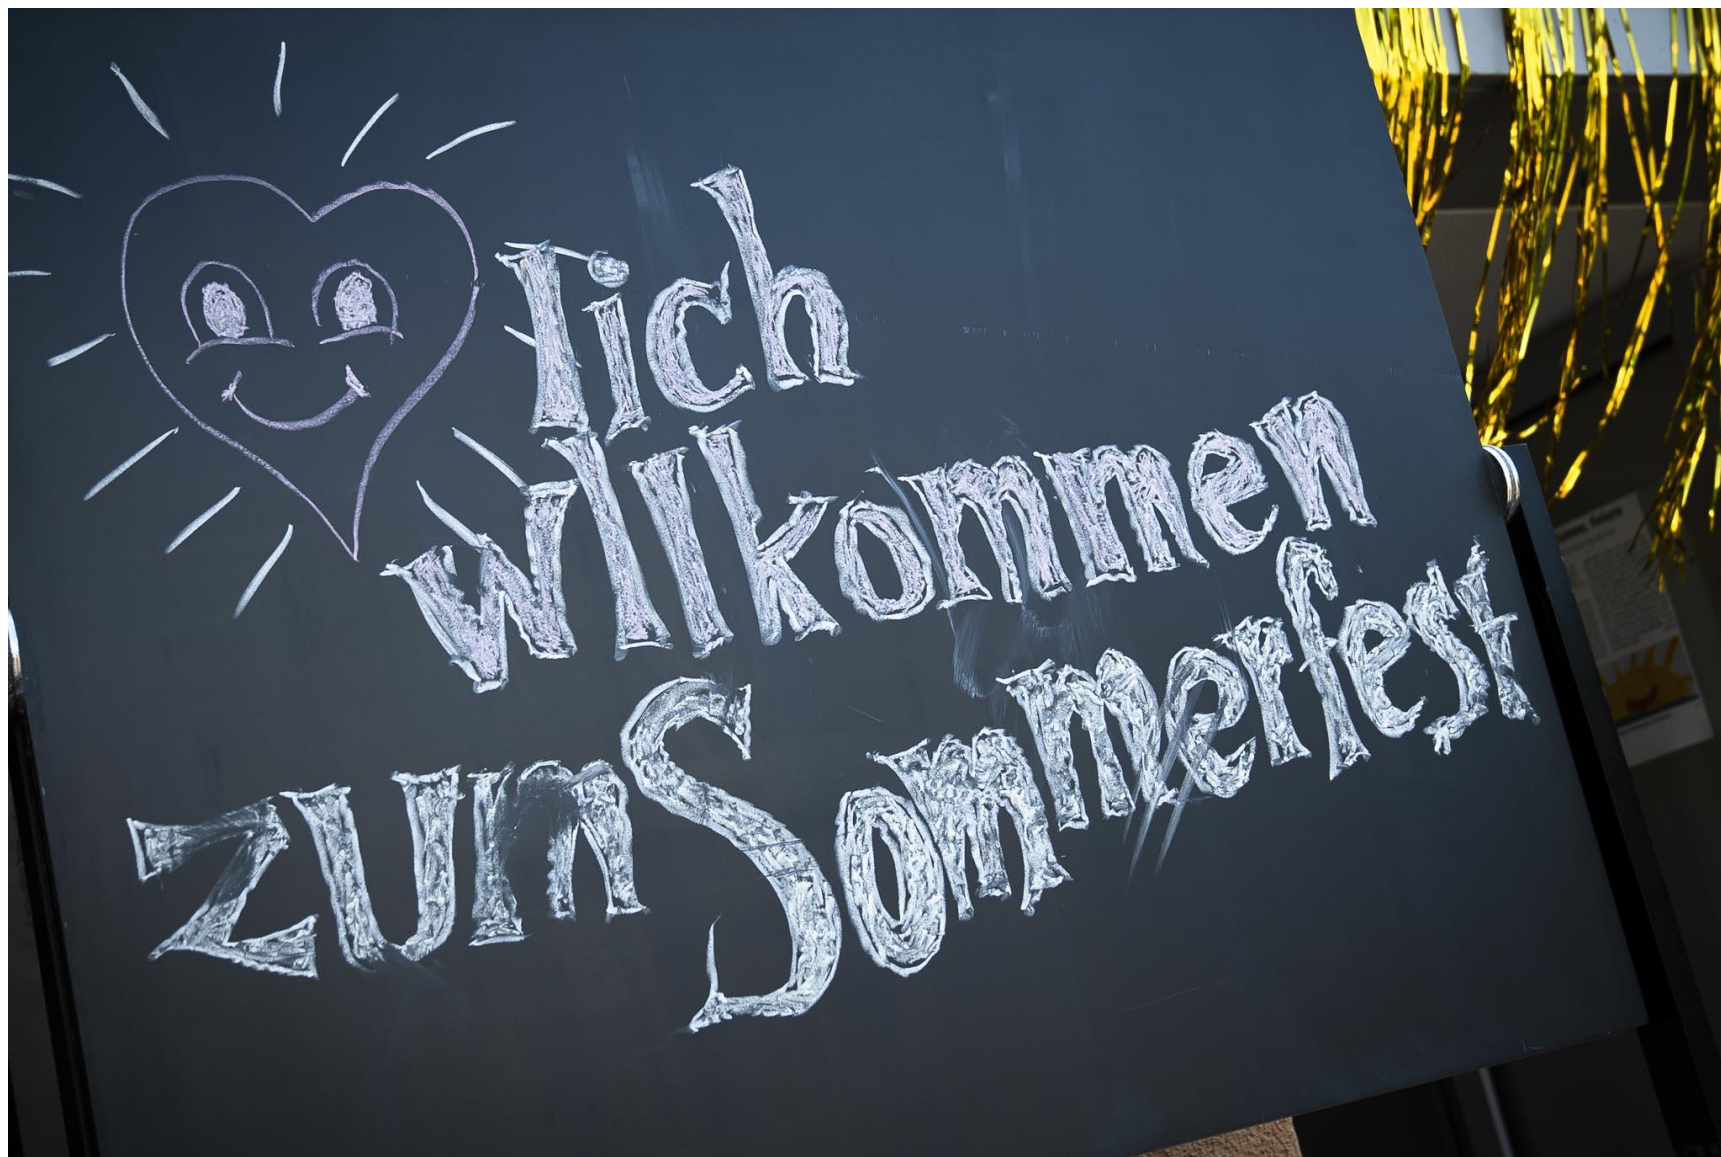 lich
wllkommen
zum Sommerfest